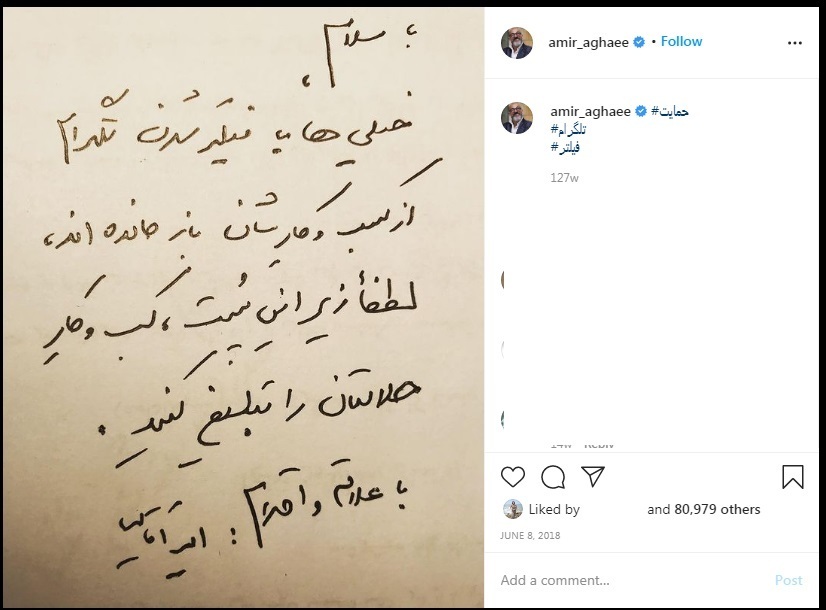 با سلام،
خیلی ها با فیلتر شدن تلگرام
از کسب و کارشان باز مانده اند،
لطفاً زیر این پُست، کسب و کارِ
حلالتان را تبلیغ کنید.
با علاقه و احترام: امیر آقایی
amir_aghaee • Follow
amir_aghaee #حمایت
#تلگرام
#فیلتر
127w
14w Reply
Liked by and 80,979 others
JUNE 8, 2018
Add a comment... Post